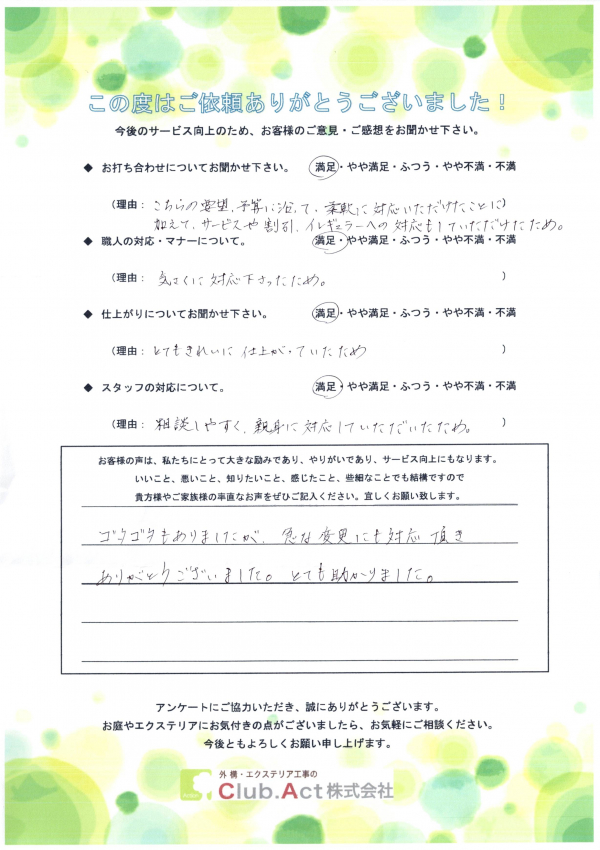 この度はご依頼ありがとうございました！
今後のサービス向上のため、お客様のご意見・ご感想をお聞かせ下さい。
◆ お打ち合わせについてお聞かせ下さい。 満足・やや満足・ふつう・やや不満・不満
（理由： こちらの要望、予算に沿って、柔軟に対応いただけたことに）
加えて、サービスや割引、イレギュラーへの対応もしていただけたため。
◆ 職人の対応・マナーについて。 満足・やや満足・ふつう・やや不満・不満
（理由： 気さくに対応下さったため。 ）
◆ 仕上がりについてお聞かせ下さい。 満足・やや満足・ふつう・やや不満・不満
（理由： とてもきれいに仕上がっていたため ）
◆ スタッフの対応について。 満足・やや満足・ふつう・やや不満・不満
（理由： 相談しやすく、親身に対応していただいたため。 ）
お客様の声は、私たちにとって大きな励みであり、やりがいであり、サービス向上にもなります。
いいこと、悪いこと、知りたいこと、感じたこと、些細なことでも結構ですので
貴方様やご家族様の率直なお声をぜひご記入ください。宜しくお願い致します。
ゴタゴタもありましたが、急な変更にも対応頂き
ありがとうございました。とても助かりました。
アンケートにご協力いただき、誠にありがとうございます。
お庭やエクステリアにお気付きの点がございましたら、お気軽にご相談ください。
今後ともよろしくお願い申し上げます。
外構・エクステリア工事の
Club.Act株式会社